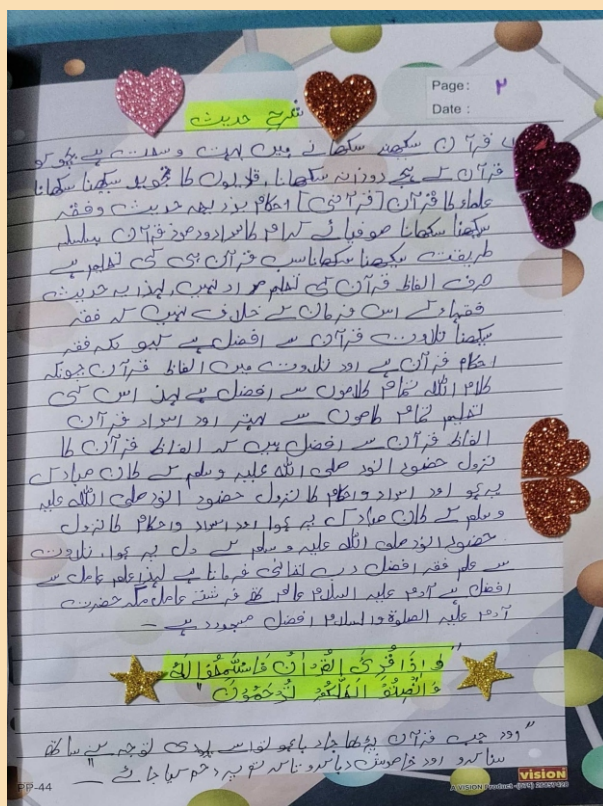 Page: ۲
Date :
شرح حدیث
قرآن سیکھنے سکھانے میں بہت وسعت ہے بچوں کو
قرآن کے ہجے روزانہ سکھانا، قاریوں کا تجوید سیکھنا سکھانا
علماء کا قرآن احکام بذریعہ حدیث وفقہ
سیکھنا سکھانا صوفیائے کرام کا اسرار ورموز قرآن بسلسلہ
طریقت سیکھنا سکھانا سب قرآن ہی کی تعلیم ہے
صرف الفاظ قرآن کی تعلیم مراد نہیں، لہذا یہ حدیث
فقہاء کے اس فرمان کے خلاف نہیں کہ فقہ
سیکھنا تلاوت قرآن سے افضل ہے کیونکہ فقہ
احکام قرآن ہے اور تلاوت میں الفاظ قرآن چونکہ
کلام اللہ تمام کلاموں سے افضل ہے لہذا اس کی
تعلیم تمام کاموں سے بہتر اور اسرار قرآن
الفاظ قرآن سے افضل ہیں کہ الفاظ قرآن کا
نزول حضور انور صلی اللہ علیہ وسلم کے کان مبارک
پہ ہوا اور اسرار واحکام کا نزول حضور انور صلی اللہ علیہ
وسلم کے کان مبارک پہ ہوا اور اسرار واحکام کا نزول
حضور انور صلی اللہ علیہ وسلم کے دل پہ ہوا، تلاوت
سے علم فقہ افضل رب تعالیٰ فرماتا ہے لہذا علم عامل سے
افضل ہے آدم علیہ السلام عالم تھے فرشتے عامل مگر حضرت
آدم علیہ الصلوۃ والسلام افضل مسجود رہے ۔
وَاِذَا قُرِئَ الْقُرْاٰنُ فَاسْتَمِعُوْا لَهٗ
وَاَنْصِتُوْا لَعَلَّكُمْ تُرْحَمُوْنَ
"اور جب قرآن پڑھا جا رہا ہو تو اسے پوری توجہ سے ساتھ
سنا کرو اور خاموش رہا کرو تاکہ تم پر رحم کیا جائے"
PP-44
VISION
A VISION Product